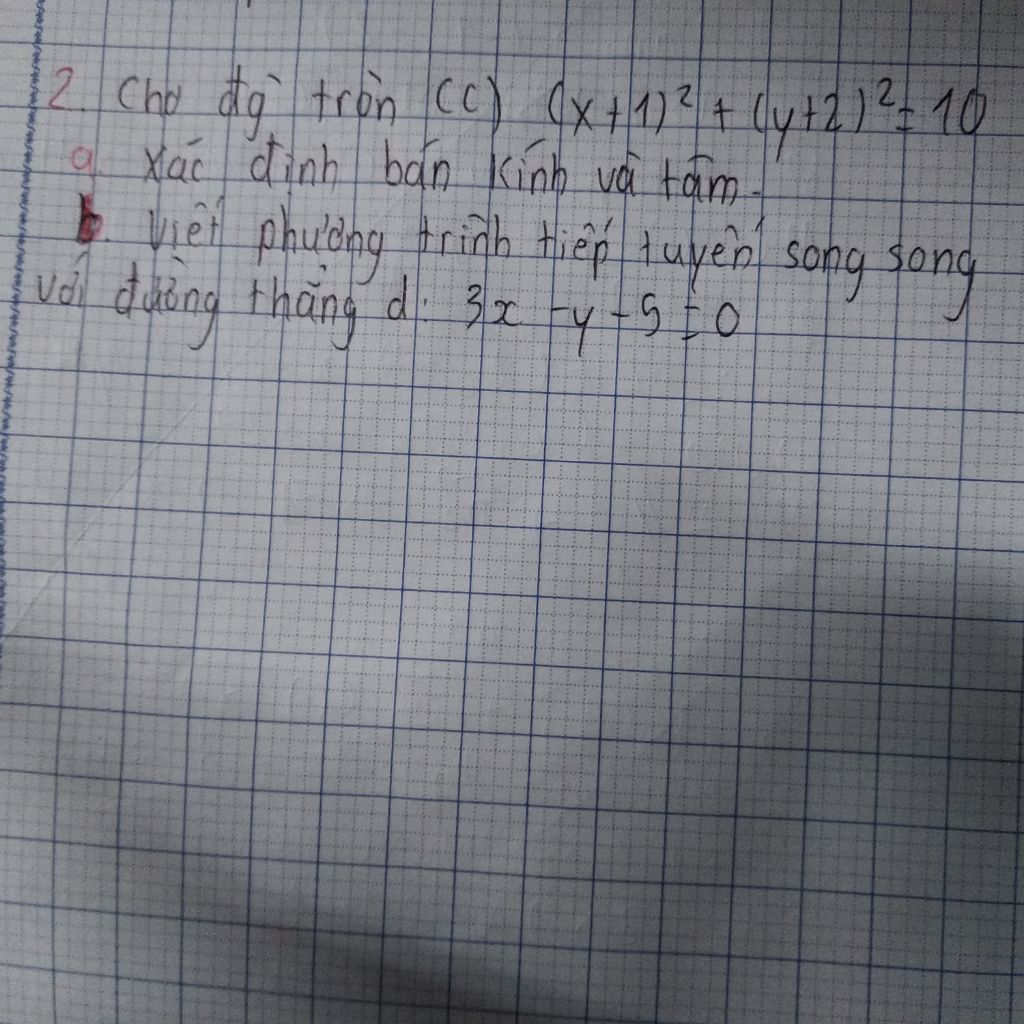 2. Cho đg̀ tròn (C) (x+1)² + (y+2)² = 10
a. Xác định bán kính và tâm.
b. Viết phương trình tiếp tuyến song song
với đường thẳng d: 3x - y - 5 = 0